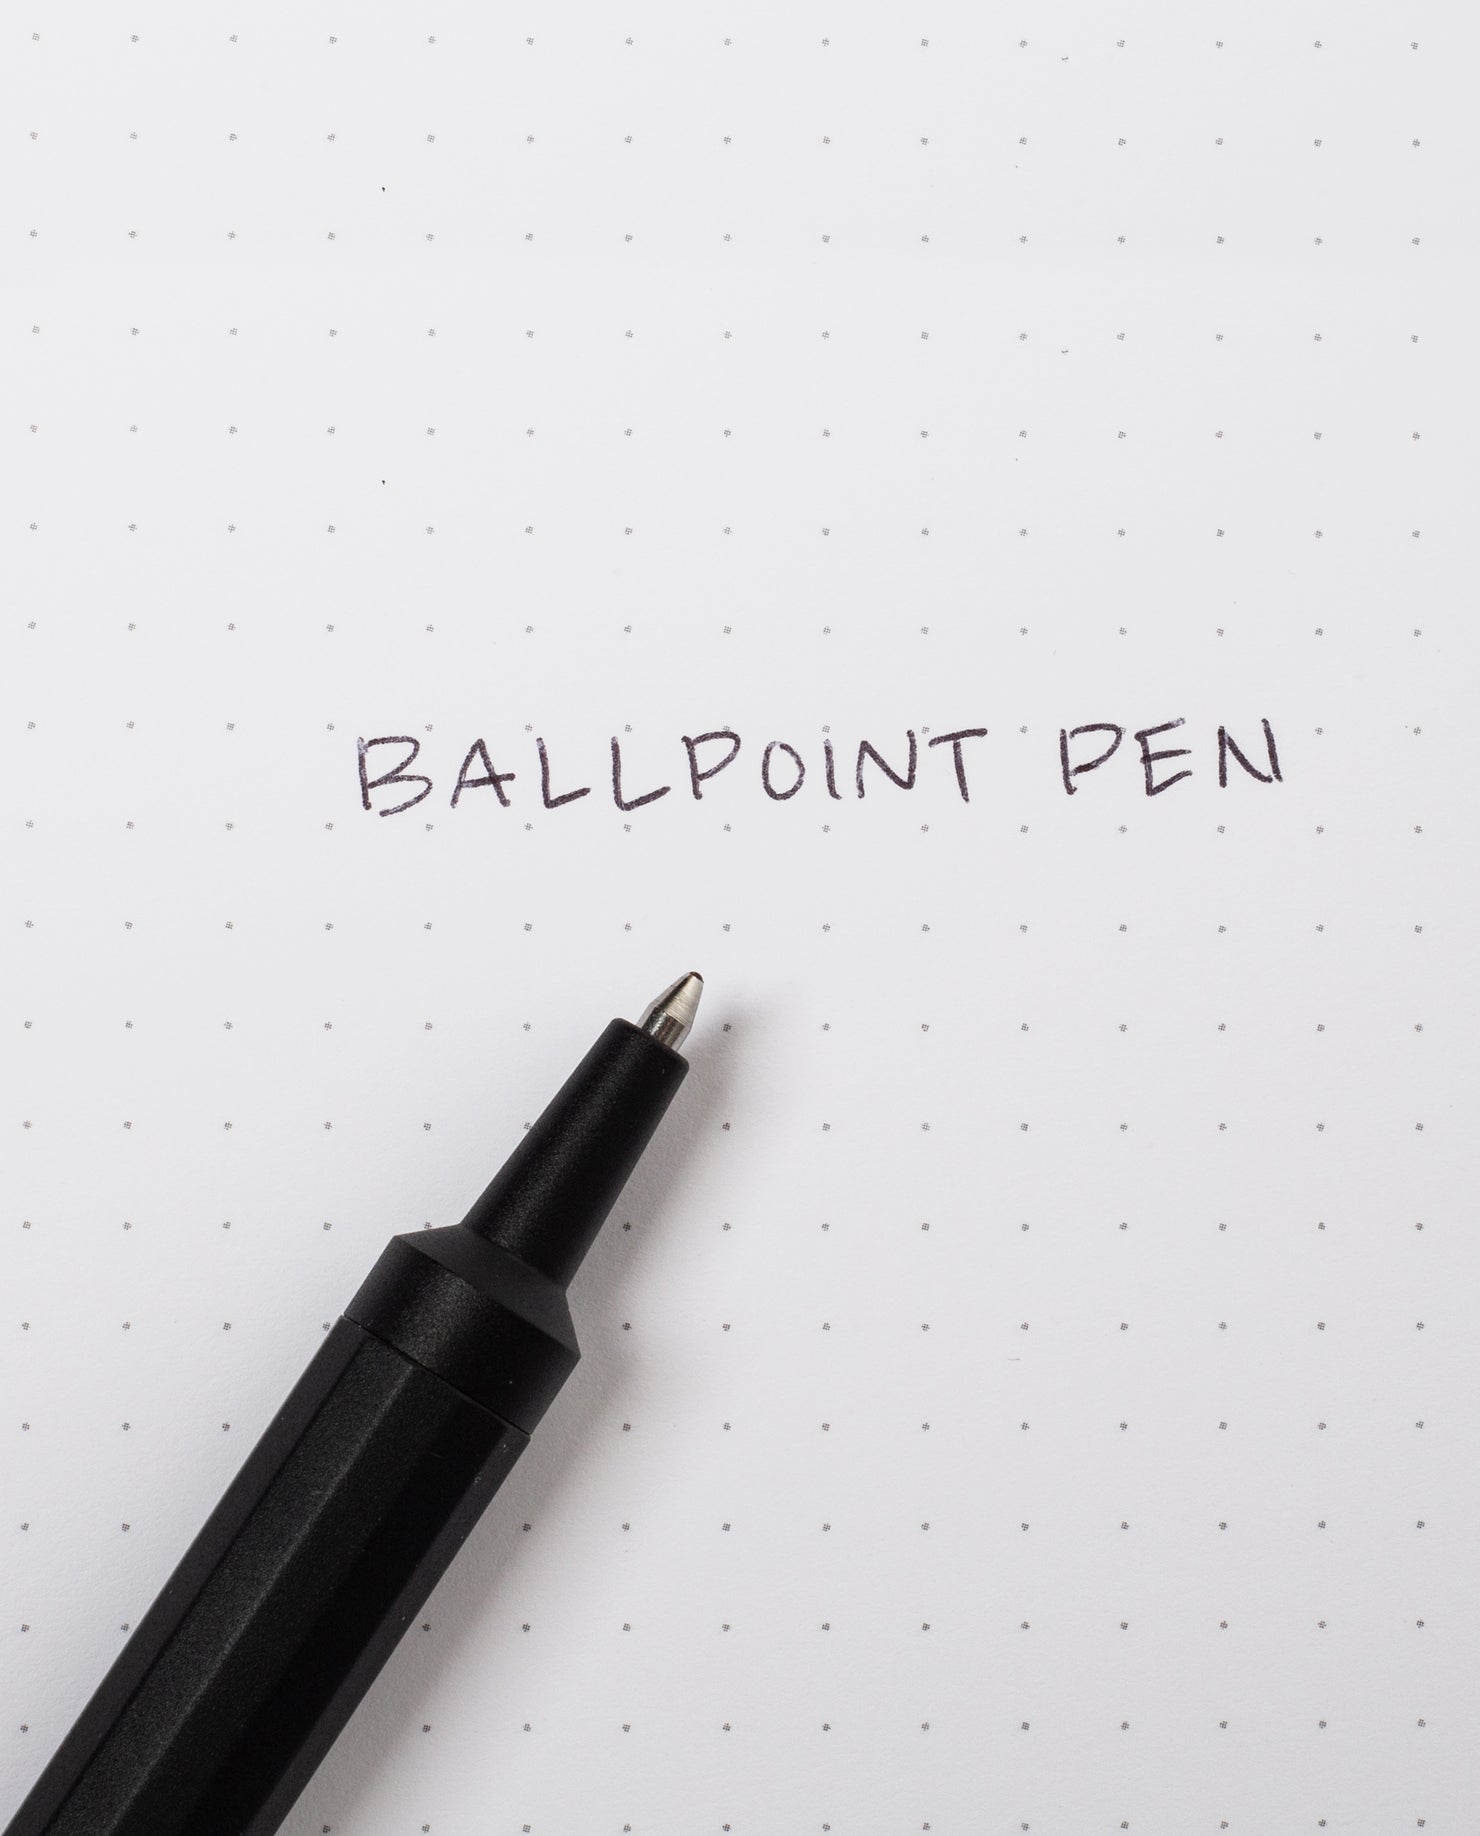 BALLPOINT PEN